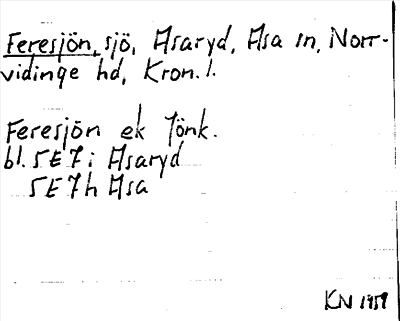 Feresjön, sjö, Asaryd, Asa sn, Norr-
vidinge hd, Kron. l.
Feresjön ek Jönk.
bl. 5E7i Asaryd
5E7h Asa
KN 1959